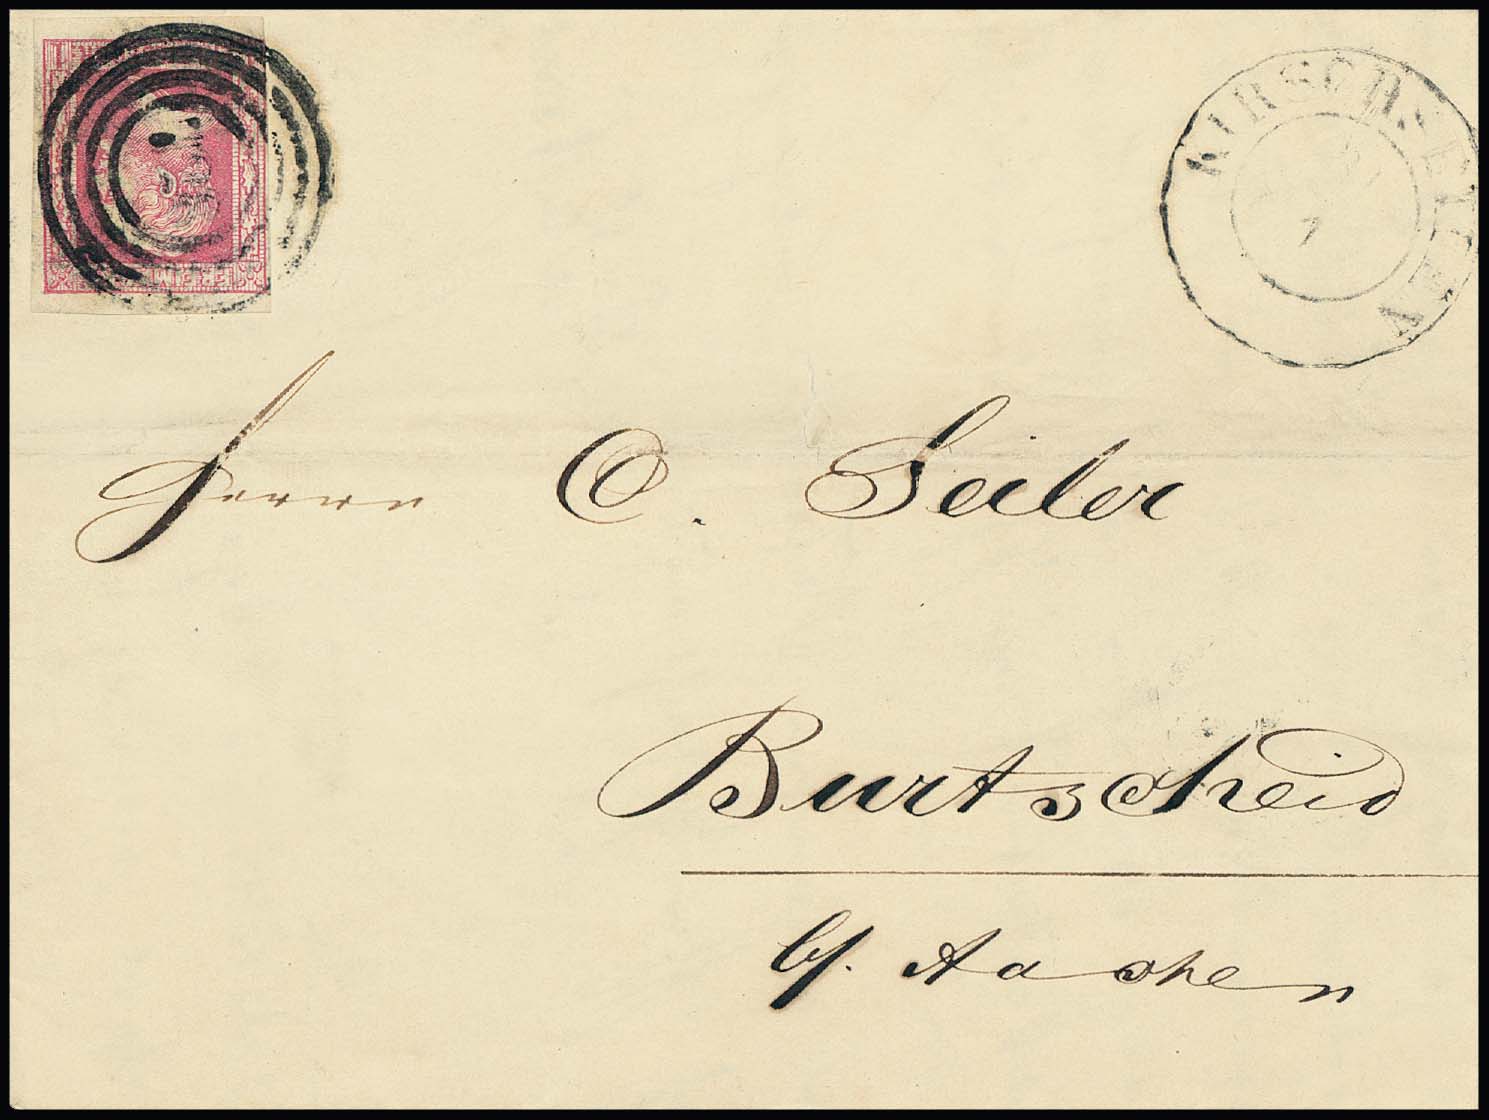 FREIM
KIRSCHSEIFFEN
7
Herrn C. Seiler
Burtscheid
b/. Aachen